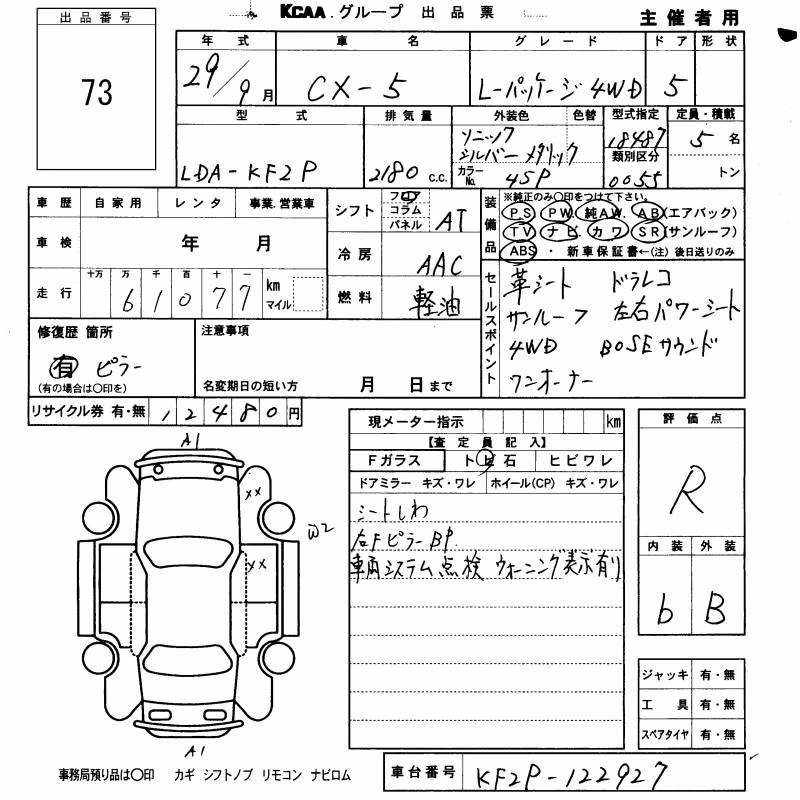 KCAA.グループ 出品票
主催者用
出品番号
73
年式 車名 グレード ドア 形状
29/9月 CX-5 L-パッケージ 4WD 5
型式 排気量 外装色 色替 型式指定 定員・積載
LDA-KF2P 2180 c.c. ソニック シルバー メタリック 18487 5名
カラーNo. 45P 類別区分 0055 トン
車歴 自家用 レンタ 事業.営業車
車検 年 月
走行 十万 万 千 百 十 一
6 1 0 7 7 km マイル
シフト フロア コラム パネル AT
冷房 AAC
燃料 軽油
装備品
※純正のみ○印をつけて下さい。
PS PW 純AW. AB(エアバック)
TV ナビ. カワ SR(サンルーフ)
ABS ・ 新車保証書←(注) 後日送りのみ
セールスポイント
革シート ドラレコ
サンルーフ 左右パワーシート
4WD BOSEサウンド
ワンオーナー
修復歴 箇所
有 ピラー
(有の場合は○印を)
注意事項
名変期日の短い方 月 日まで
リサイクル券 有・無 12480円
現メーター指示 km
【査定員記入】
Fガラス トビ石 ヒビワレ
ドアミラー キズ・ワレ ホイール(CP) キズ・ワレ
シートしわ
右Fピラー BP.
車両システム点検 ウォーニング表示有り
評価点
R
内装 外装
b B
ジャッキ 有・無
工具 有・無
スペアタイヤ 有・無
A1
XX
W2
XX
A1
事務局預り品は○印 カギ シフトノブ リモコン ナビロム
車台番号 KF2P-122927